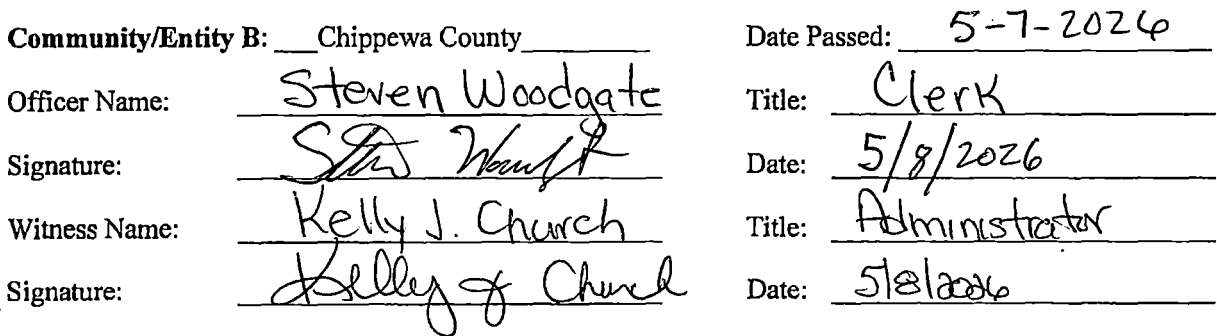 Community/Entity B: Chippewa County Date Passed: 5-7-2026
Officer Name: Steven Woodgate Title: Clerk
Signature: Date: 5/8/2026
Witness Name: Kelly J. Church Title: Administrator
Signature: Kelly J Church Date: 5/8/2026